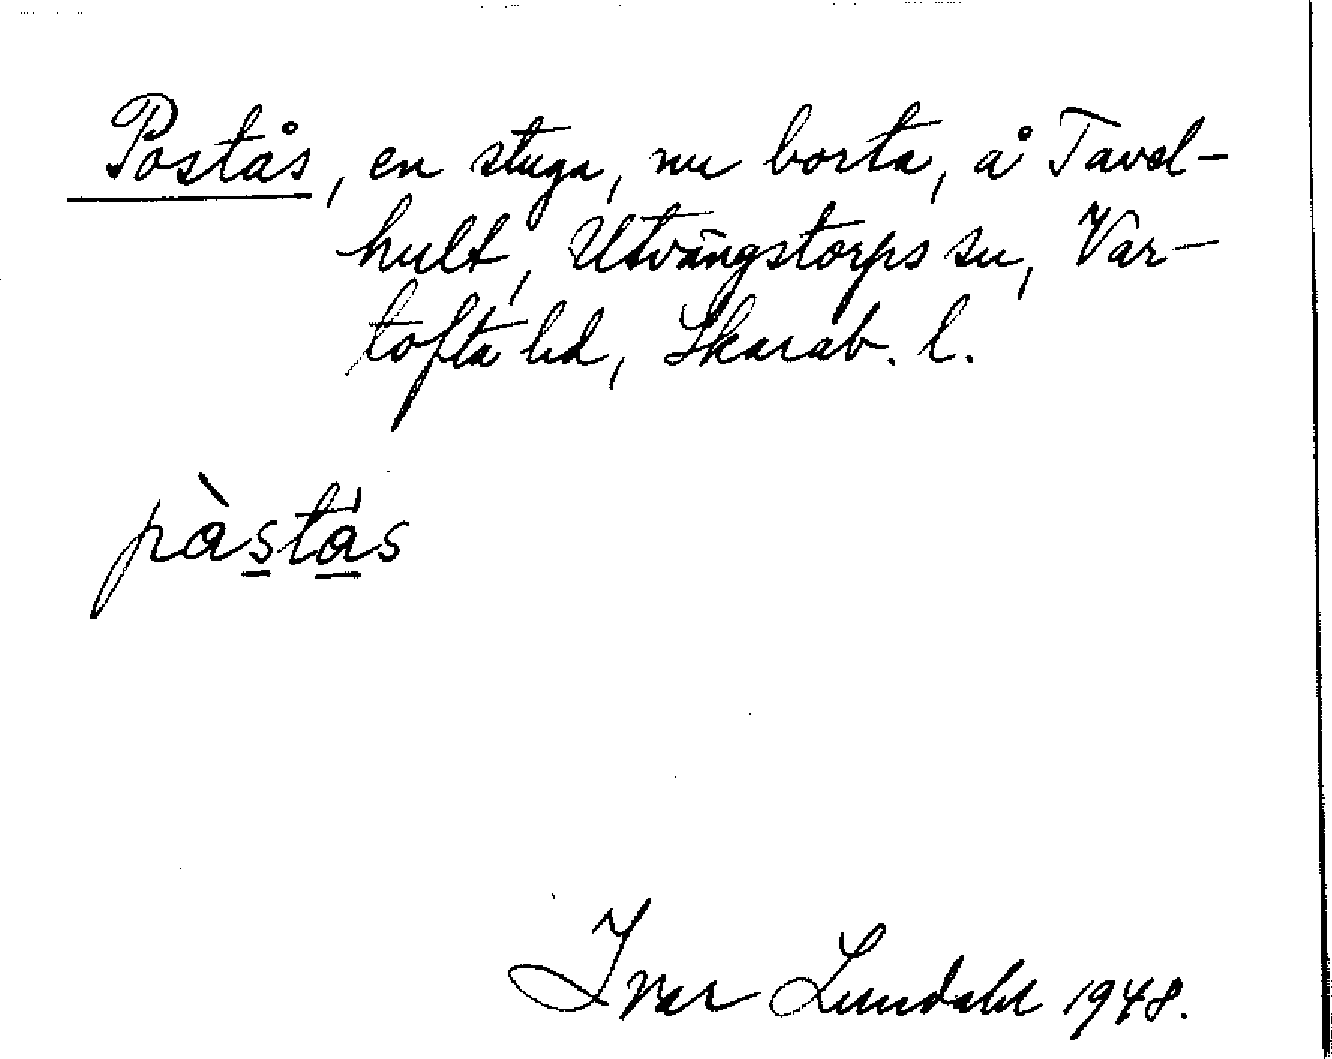 Postås, en stuga, nu borta, å Tavel-
hult, Utvängstorps sn, Var-
tofta hd, Skarab. l.
pàstás
Ivar Lundahl 1948.